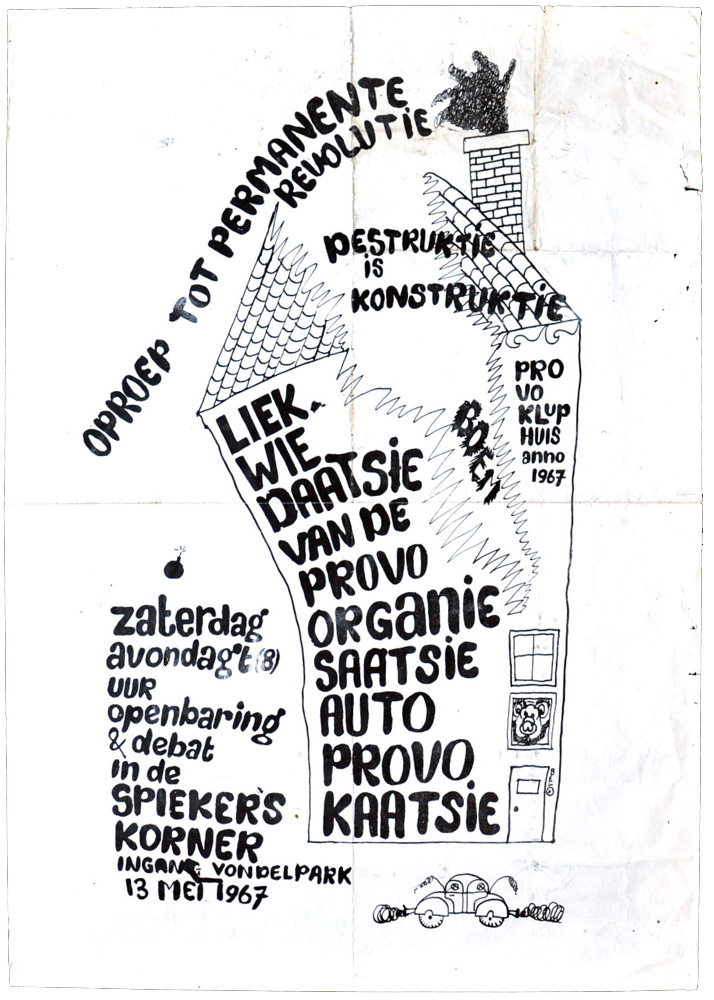 OPROEP TOT PERMANENTE
REVOLUTIE
DESTRUKTIE
is
KONSTRUKTIE
PRO
VO
KLUP
HUIS
anno
1967
BOEM
LIEK.
WIE
DAATSIE
VAN DE
PROVO
ORGANIE
SAATSIE
AUTO
PROVO
KAATSIE
zaterdag
avondag't (8)
UUR
openbaring
& debat
in de
SPIEKER'S
KORNER
INGANG VONDELPARK
13 MEI 1967